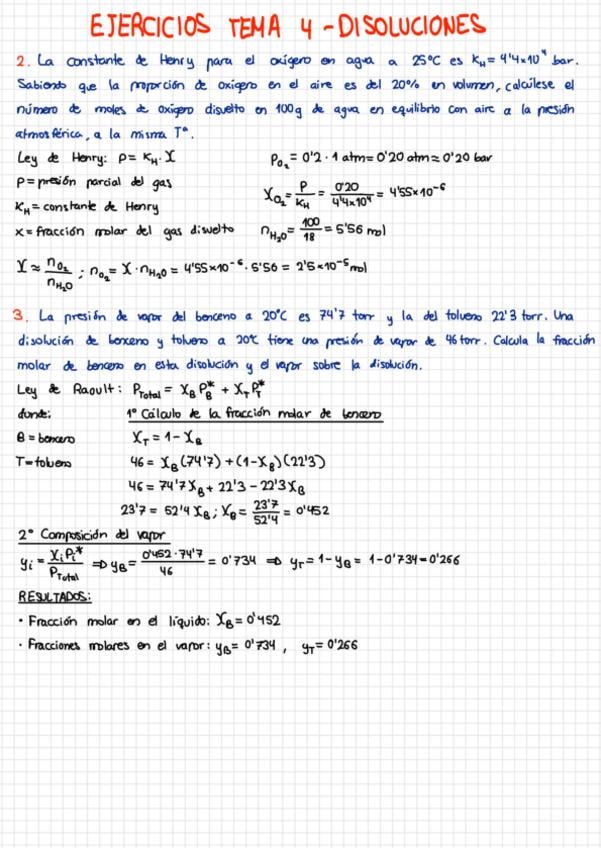 EJERCICIOS TEMA 4 - DISOLUCIONES
2. La constante de Henry para el oxígero en agua a 25°C es KH = 4'4x10⁴ bar.
Sabiendo que la proporción de oxigero en el aire es del 20% en volumen, calcúlese el
número de moles de oxígero disuelto en 100g de agua en equilibrio con aire a la presión
atmosférica, a la misma Tª.
Ley de Henry: P = KH · X
P = presión parcial del gas
KH = constante de Henry
x = fracción molar del gas disuelto
PO₂ = 0'2 · 1 atm = 0'20 atm ≈ 0'20 bar
XO₂ = P/KH = 0'20/4'4x10⁴ = 4'55x10⁻⁶
nH₂O = 100/18 = 5'56 mol
X ≈ nO₂/nH₂O ; nO₂ = X · nH₂O = 4'55x10⁻⁶ · 5'56 = 2'5x10⁻⁵ mol
3. La presión de vapor del benceno a 20°C es 74'7 torr y la del tolueno 22'3 torr. Una
disolución de benceno y tolueno a 20°C tiene una presión de vapor de 46 torr. Calcula la fracción
molar de benceno en esta disolución y el vapor sobre la disolución.
Ley de Raoult: PTotal = XB PB* + XT PT*
donde:
B = benceno
T = tolueno
1º Cálculo de la fracción molar de benceno
XT = 1 - XB
46 = XB (74'7) + (1-XB)(22'3)
46 = 74'7 XB + 22'3 - 22'3 XB
23'7 = 52'4 XB ; XB = 23'7/52'4 = 0'452
2º Composición del vapor
yi = Xi Pi*/PTotal ⇒ yB = 0'452 · 74'7/46 = 0'734 ⇒ yT = 1 - yB = 1 - 0'734 = 0'266
RESULTADOS:
· Fracción molar en el líquido: XB = 0'452
· Fracciones molares en el vapor: yB = 0'734 , yT = 0'266